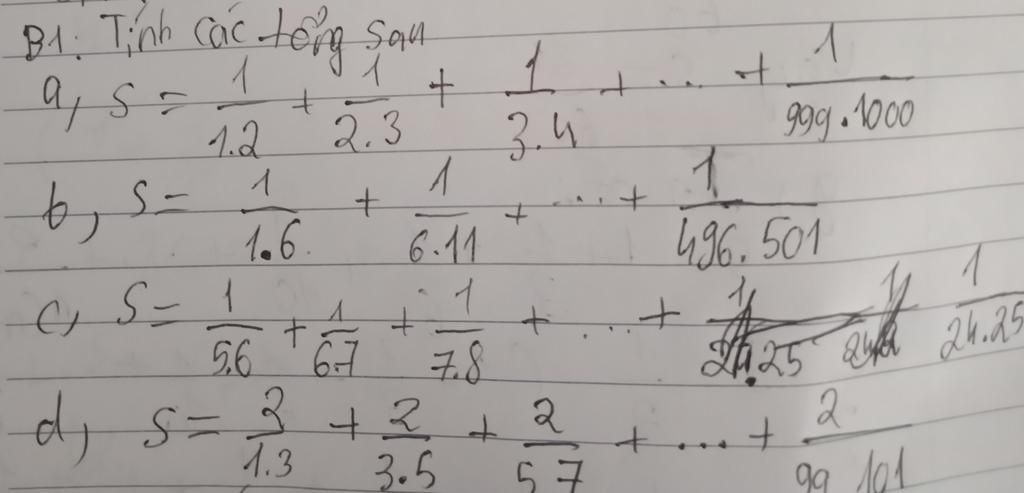 B1: Tính các tổng sau
a, S = 1/1.2 + 1/2.3 + 1/3.4 + ... + 1/999.1000
b, S = 1/1.6 + 1/6.11 + ... + 1/496.501
c, S = 1/5.6 + 1/6.7 + 1/7.8 + ... + 1/24.25
d, S = 2/1.3 + 2/3.5 + 2/5.7 + ... + 2/99.101